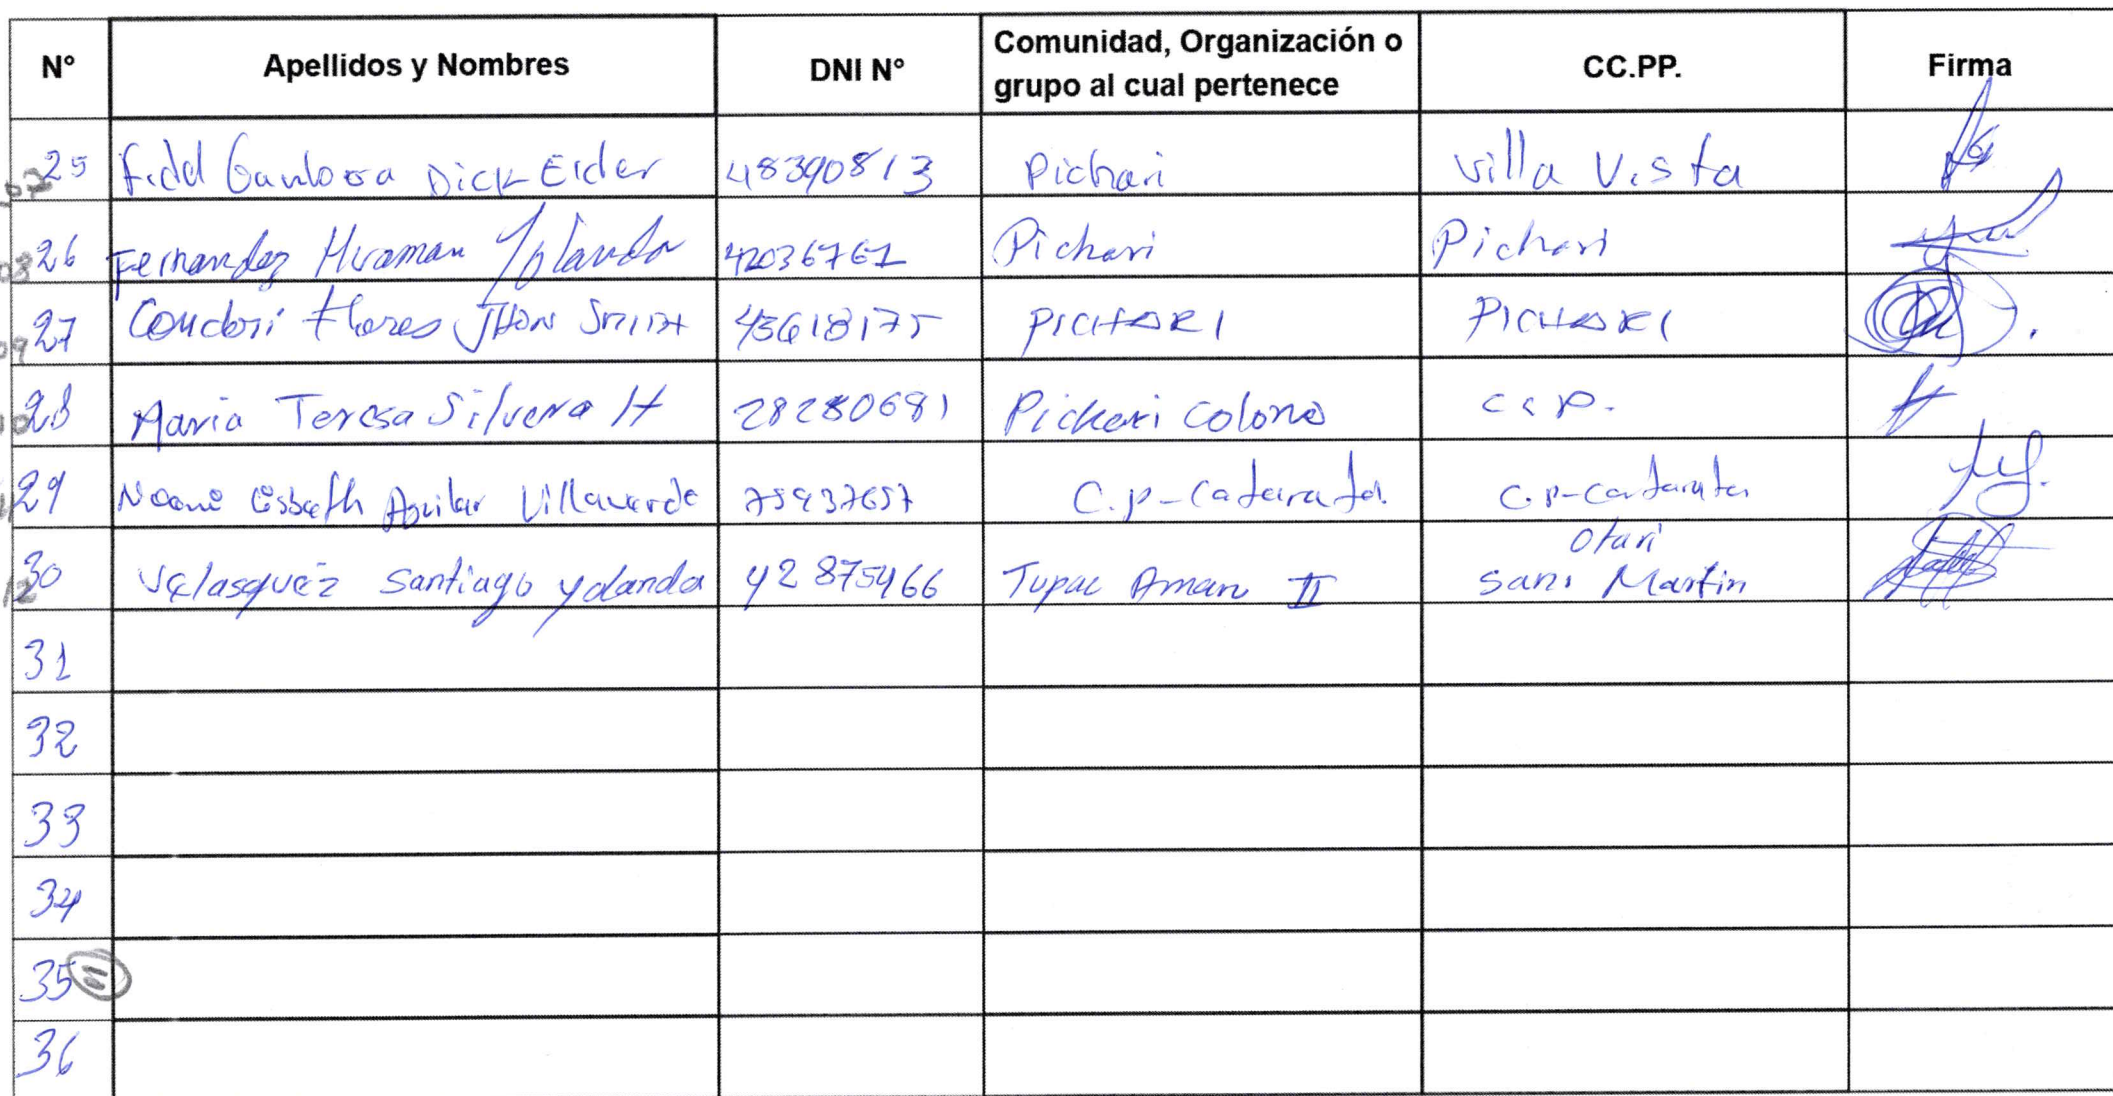 N° Apellidos y Nombres DNI N° Comunidad, Organización o grupo al cual pertenece CC.PP. Firma
07 25 Fidel Gamboa Dick Elder 48390813 Pichari Villa Vista
08 26 Fernandez Huaman Yolanda 42036761 Pichari Pichari
09 27 Condori Flores JHON SMITH 45618175 PICHARI PICHARI
10 28 Maria Teresa Silvera H 28280681 Pichari Colono C C P.
29 Noemi Lisbeth Aguilar Villaverde 75937657 C.p-Catarata C.P-Catarata
12 30 Velasquez Santiago Yolanda 42875466 Tupac Amaru II Otari San Martin
31
32
33
34
35 11
36